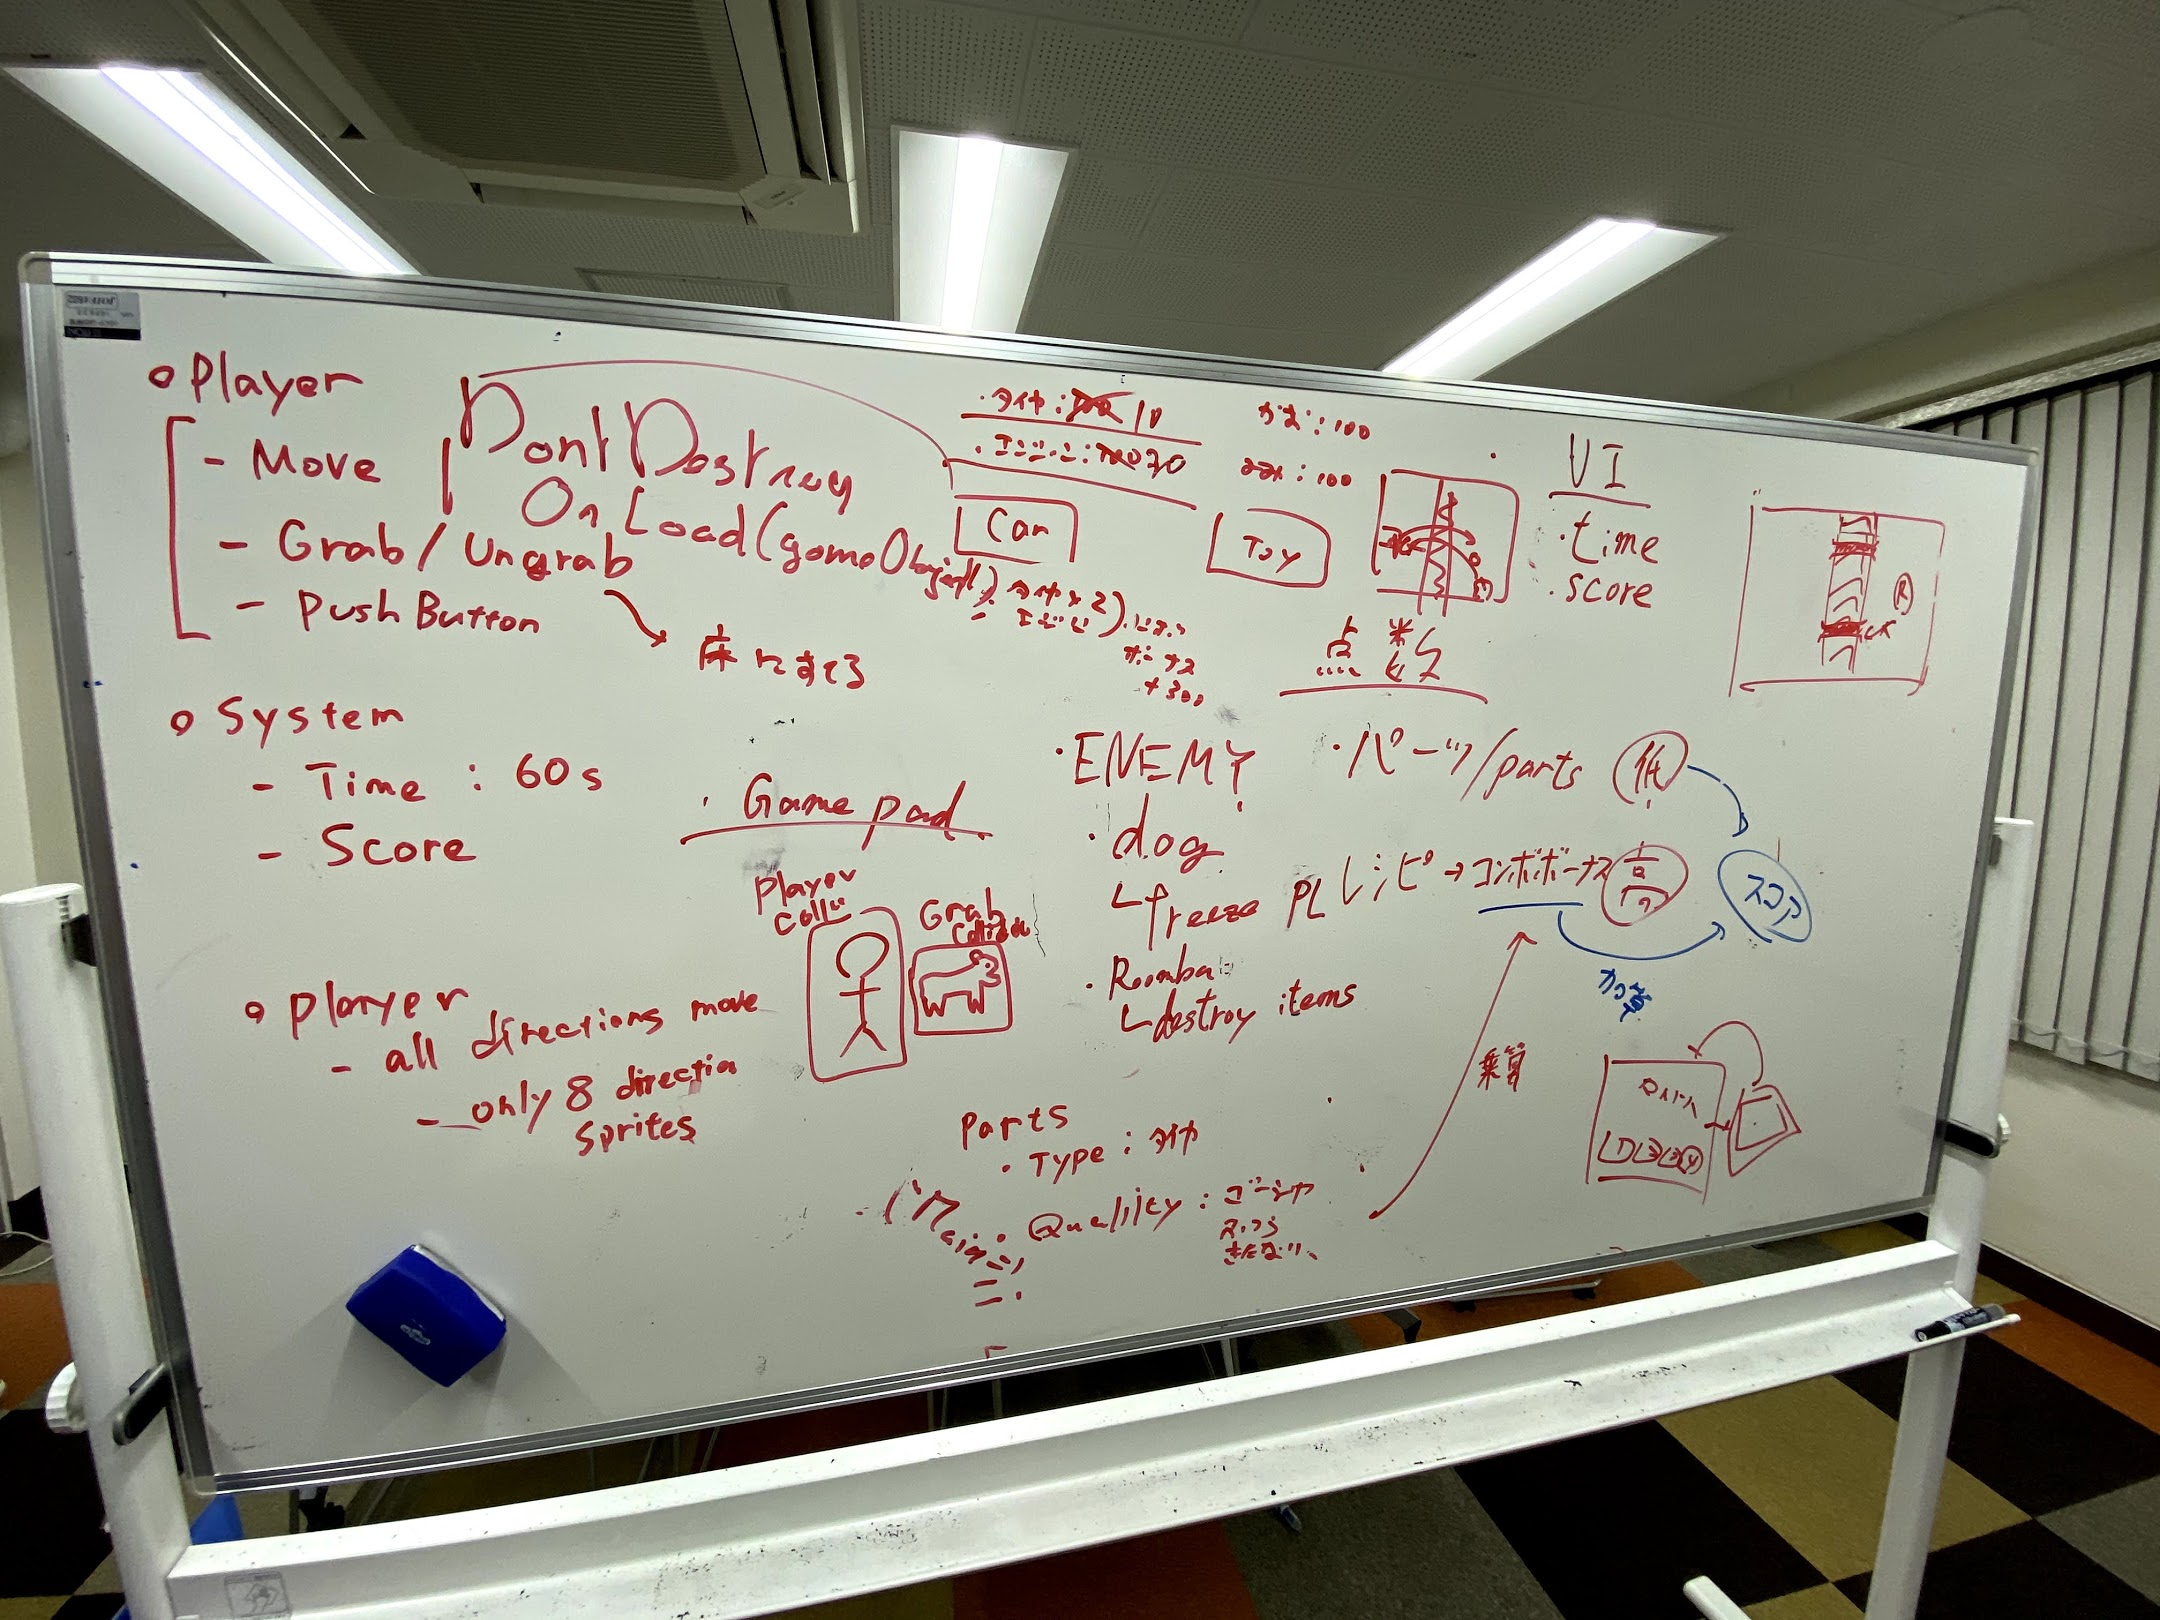 Player
- Move
- Grab / Ungrab
- Push Button
床にすてる
DontDestroy
OnLoad(gameObject)
・タイヤ: 10
・エンジン: 30
:100
:100
Car
タイヤ×2
エンジン
ボーナス
+300
Toy
点数
UI
・time
・score
R
System
- Time : 60s
- Score
・Game pad
Player
Grab
Player
- all directions move
- only 8 direction
sprites
・ENEMY
・dog
freeze PL
・Roomba
destroy items
・パーツ/parts 低
レシピ→コンボボーナス 高
スコア
加算
乗算
Parts
・Type : タイヤ
・Quality : ゴージャス
ふつう
きたない